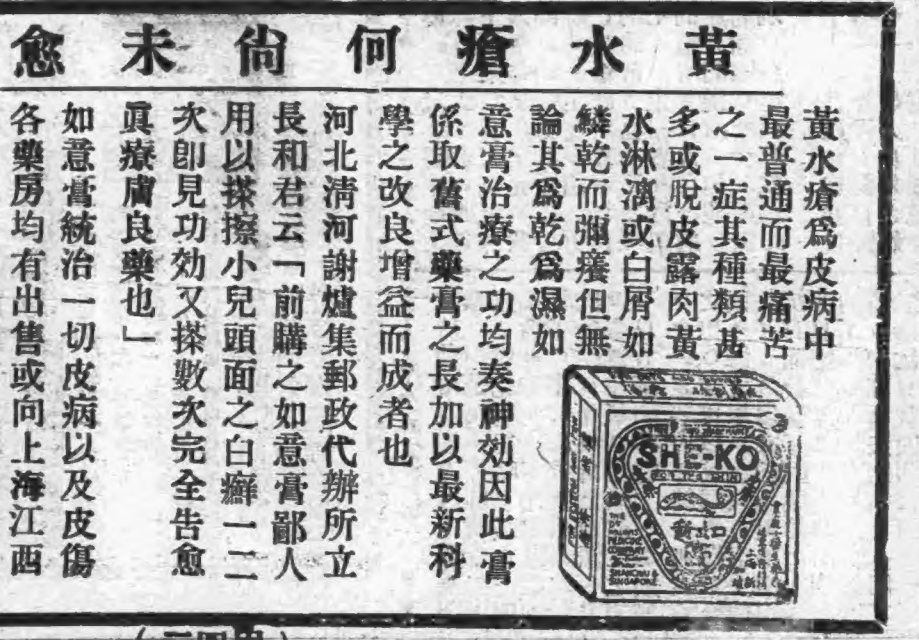 黃水瘡何尙未愈
黃水瘡爲皮病中
最普通而最痛苦
之一症其種類甚
多或脫皮露肉黃
水淋漓或白屑如
鱗乾而彌癢但無
論其爲乾爲濕如
意膏治療之功均奏神効因此膏
係取舊式藥膏之長加以最新科
學之改良增益而成者也
河北淸河謝爐集郵政代辦所立
長和君云「前購之如意膏鄙人
用以搽擦小兒頭面之白癬一二
次卽見功効又搽數次完全告愈
眞療膚良藥也」
如意膏統治一切皮病以及皮傷
各藥房均有出售或向上海江西
SHI-KO
MEDICINE
COMPANY
SHANGHAI &
SINGAPORE